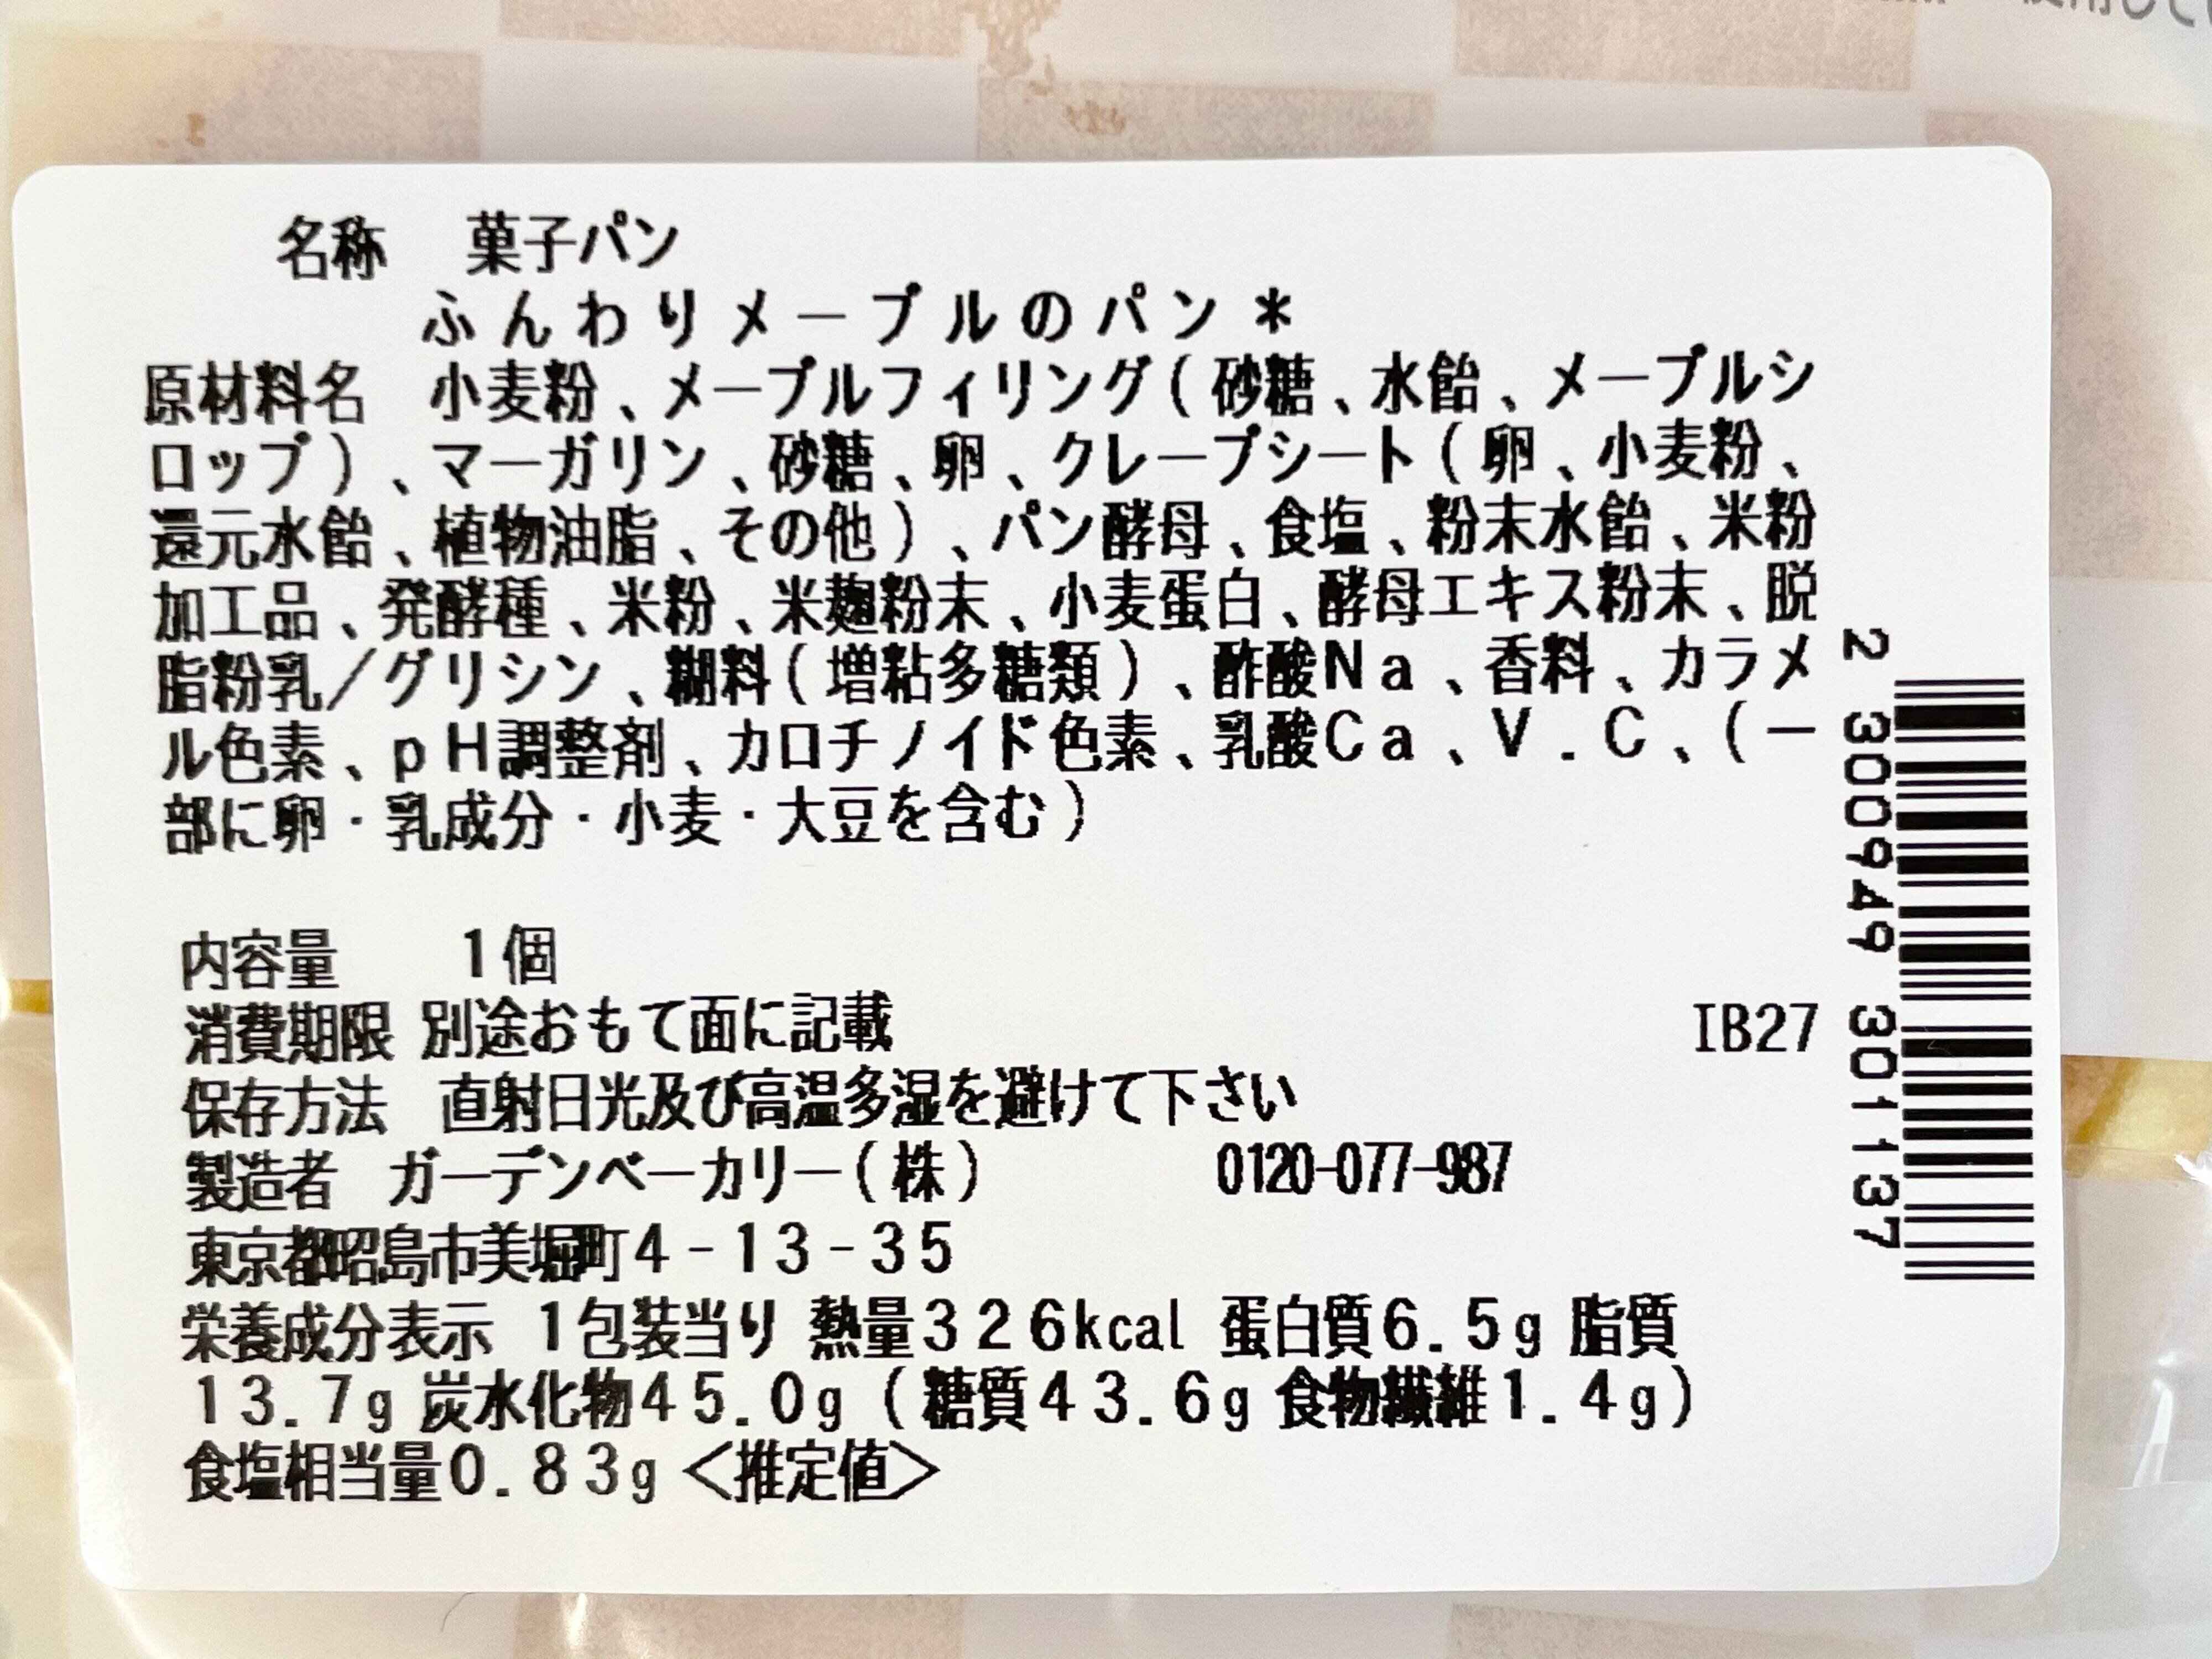 名称 菓子パン
ふんわりメープルのパン＊
原材料名 小麦粉、メープルフィリング(砂糖、水飴、メープルシ
ロップ)、マーガリン、砂糖、卵、クレープシート(卵、小麦粉、
還元水飴、植物油脂、その他)、パン酵母、食塩、粉末水飴、米粉
加工品、発酵種、米粉、米麹粉末、小麦蛋白、酵母エキス粉末、脱
脂粉乳／グリシン、糊料(増粘多糖類)、酢酸Na、香料、カラメ
ル色素、pH調整剤、カロチノイド色素、乳酸Ca、V.C、(一
部に卵・乳成分・小麦・大豆を含む)
内容量 1個
消費期限 別途おもて面に記載 IB27
保存方法 直射日光及び高温多湿を避けて下さい
製造者 ガーデンベーカリー(株) 0120-077-987
東京都昭島市美堀町4-13-35
栄養成分表示 1包装当り 熱量326kcal 蛋白質6.5g 脂質
13.7g 炭水化物45.0g (糖質43.6g 食物繊維1.4g)
食塩相当量0.83g <推定値>
2 300949 301137